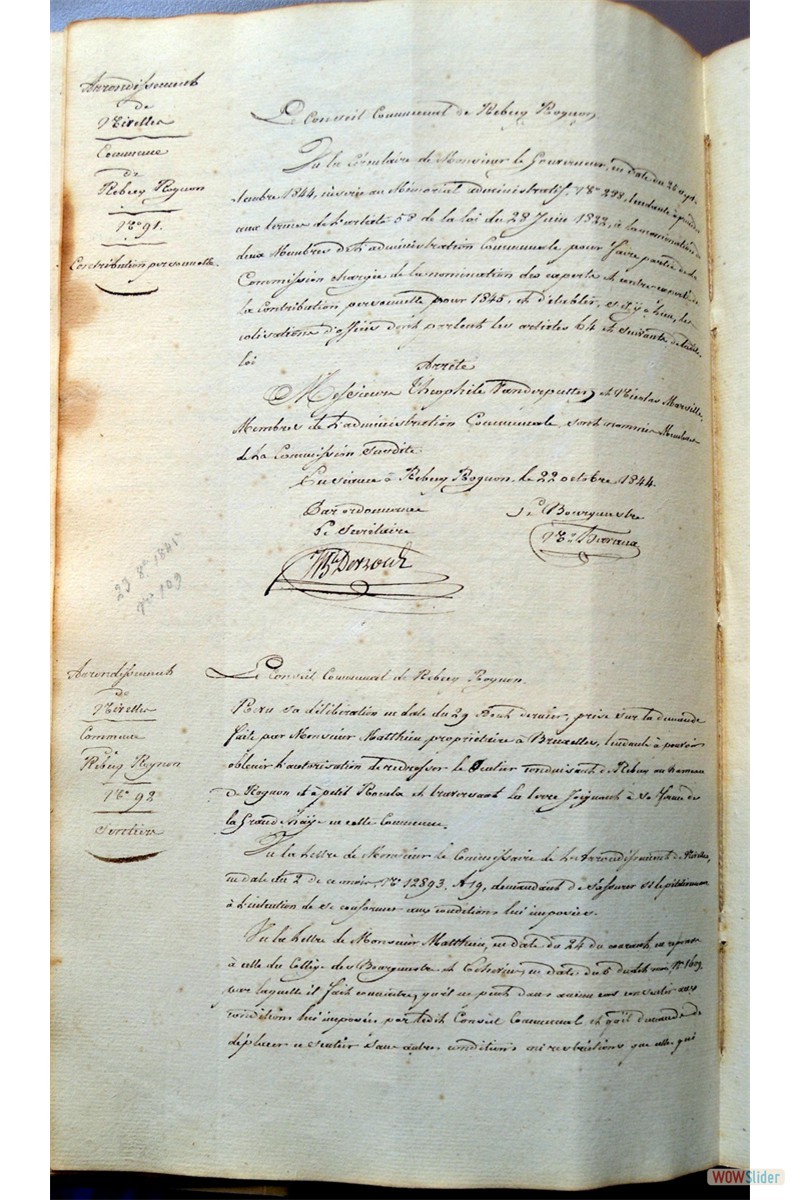 Arrondissement
de
Nivelles
Commune
de
Rebecq Rognon
N° 91.
Contribution personnelle.
Le Conseil Communal de Rebecq Rognon.
Vu la Circulaire de Monsieur le Gouverneur, en date du 26 sept-
tembre 1844, inserée au Mémorial administratif, N° 298, tendante à procéder
aux termes de l'article 58 de la loi du 28 Juin 1822, à la nomination de
deux Membres de l'administration Communale pour faire partie de la
Commission chargée de la nomination des experts et contre-experts de
la Contribution personnelle pour 1845, et d'établir, s'il y a lieu, les
cotisations d'office dont parlent les articles 64 et suivants de ladite
loi
Arrête
Messieurs Théophile Vanderputten et Nicolas Marville,
Membres de l'administration Communale, sont nommés Membres
de la Commission susdite.
En séance à Rebecq Rognon, le 22 octobre 1844.
Par ordonnance
Le Secrétaire
Le Bourgmestre
23 8e 1845
N° 109
Arrondissement
de
Nivelles
Commune
de
Rebecq Rognon
N° 92
Sentiers
Le Conseil Communal de Rebecq Rognon.
Revu sa délibération en date du 29 Août dernier, prise sur la demande
faite par Monsieur Matthieu propriétaire à Bruxelles, tendante à pouvoir
obtenir l'autorisation de redresser le Sentier conduisant de Rebecq au hameau
de Rognon et à petit et traversant la terre joignant à sa
la Grande haye en cette Commune.
Vu la lettre de Monsieur le Commissaire de l'Arrondissement de Nivelles,
en date du 2 de ce mois, N° 12893. A 19, demandant de s'assurer si le pétitionnaire
à l'intention de se conformer aux conditions lui imposées.
Vu la lettre de Monsieur Matthieu, en date du 24 du courant, en réponse
à celle du Collége des Bourgmestre et Echevins, en date du 5 du dit mois, N° 1609,
par laquelle il fait connaître, qu'il ne peut dans aucun cas consentir aux
conditions lui imposées par ledit Conseil Communal et qu'il demande de
déplacer ce sentier sans autres conditions ni restrictions que celle qui
WOWSlider